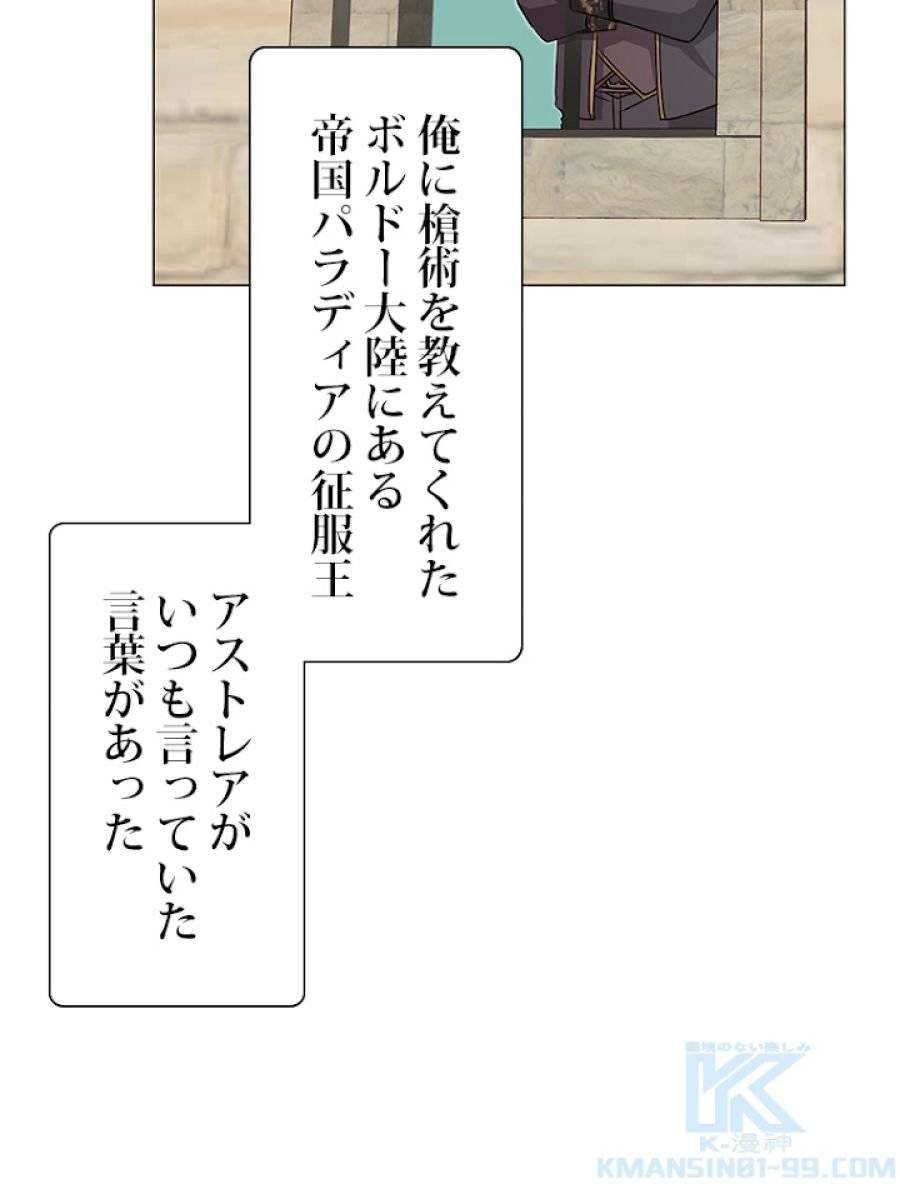 俺に槍術を教えてくれた
ボルドー大陸にある
帝国パラディアの征服王
アストレアが
いつも言っていた
言葉があった
際境のない楽しみ
K
K-漫神
KMANSIN01-99.COM